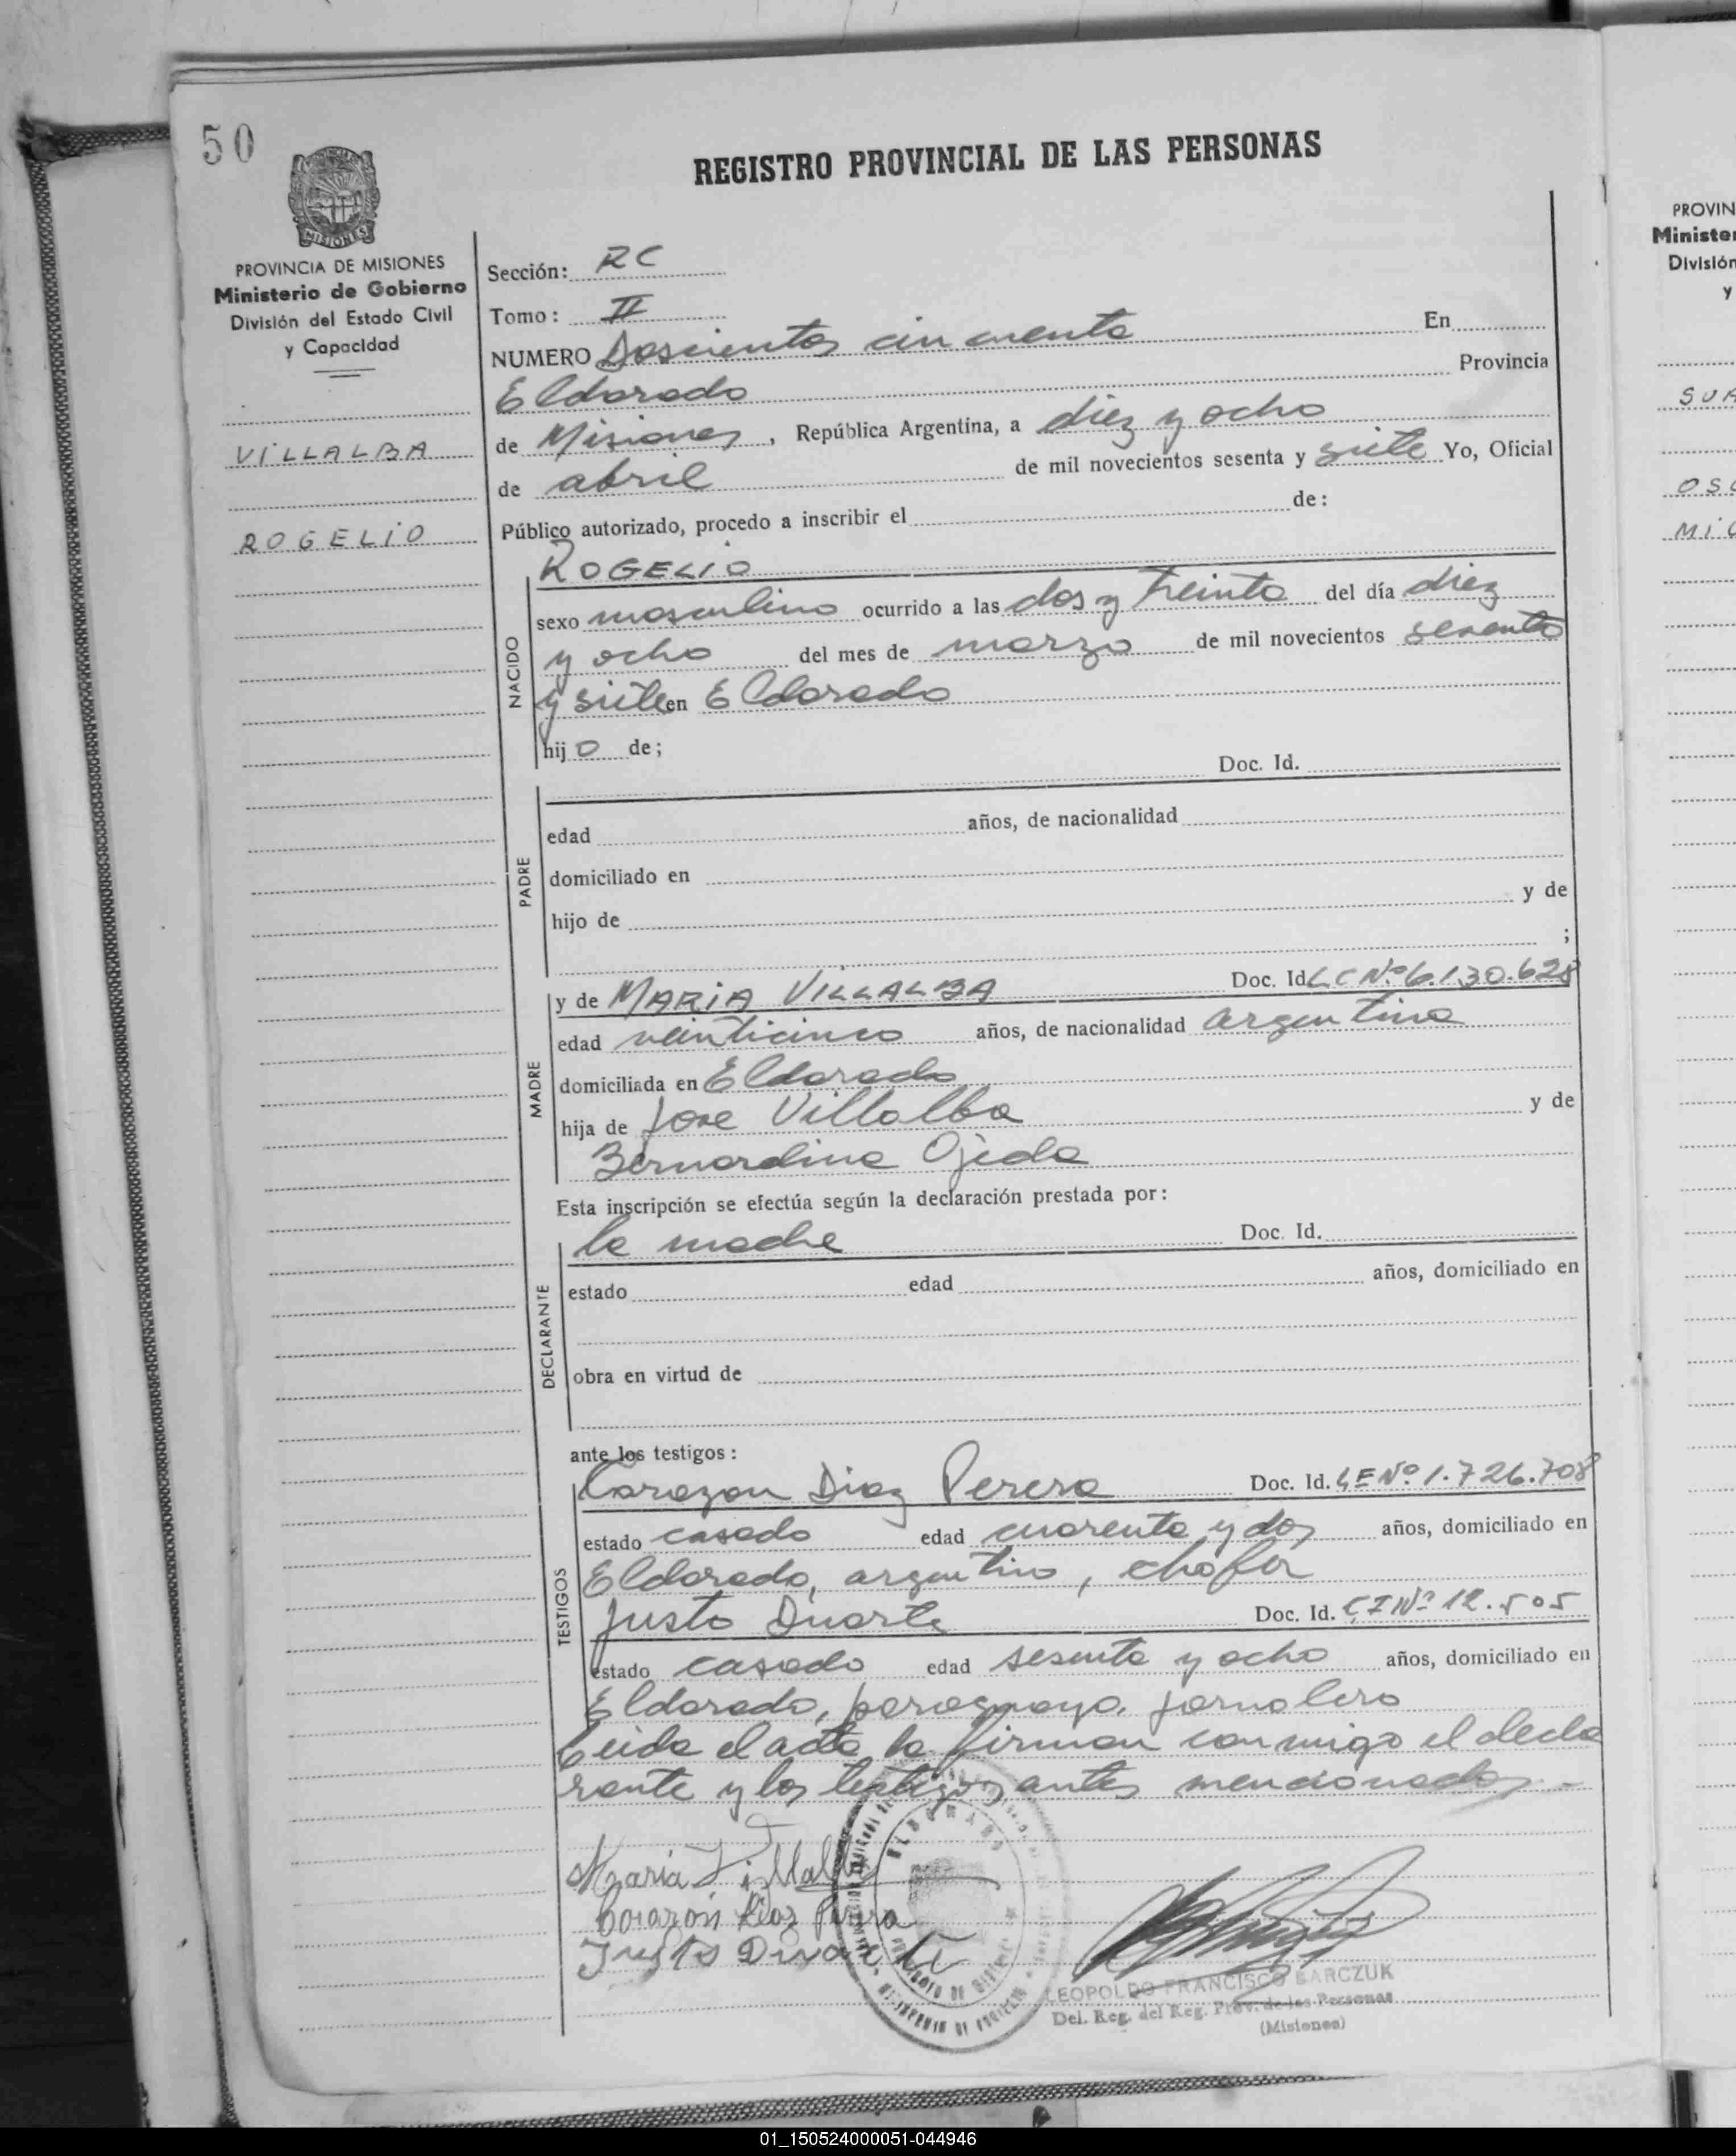 50
REGISTRO PROVINCIAL DE LAS PERSONAS
MISIONES
PROVINCIA DE MISIONES
Ministerio de Gobierno
División del Estado Civil
y Capacidad
VILLALBA
ROGELIO
Sección: RC
Tomo: II
NUMERO Doscientos cincuenta En
Eldorado Provincia
de Misiones, República Argentina, a diez y ocho
de abril de mil novecientos sesenta y siete Yo, Oficial
Público autorizado, procedo a inscribir el de:
NACIDO
ROGELIO
sexo masculino ocurrido a las dos y treinta del día diez
y ocho del mes de marzo de mil novecientos sesenta
y siete en Eldorado
hijo de;
PADRE
Doc. Id.
edad años, de nacionalidad
domiciliado en
hijo de y de
;
MADRE
y de MARIA VILLALBA Doc. Id LC Nº 6.130.628
edad veinticinco años, de nacionalidad argentina
domiciliada en Eldorado
hija de Jose Villalba y de
Bernardina Ojeda
Esta inscripción se efectúa según la declaración prestada por:
DECLARANTE
la madre Doc. Id.
estado edad años, domiciliado en
obra en virtud de
ante los testigos:
TESTIGOS
Corazon Diaz Perera Doc. Id. LE Nº 1.726.708
estado casado edad cuarenta y dos años, domiciliado en
Eldorado, argentino, chofer
Justo Duarte Doc. Id. CI Nº 12.505
estado casado edad sesenta y ocho años, domiciliado en
Eldorado, paraguayo, jornalero
Leida el acta la firman conmigo el decla
rante y los testigos antes mencionados.-
Maria Villalba
Corazón Diaz Perera
Justo Duarte
ELDORADO
LEOPOLDO FRANCISCO BARCZUK
Del. Reg. del Reg. Prov. de las Personas
(Misiones)
PROVIN
Minister
División
y
SUA
OSC
MIG
01_150524000051-044946